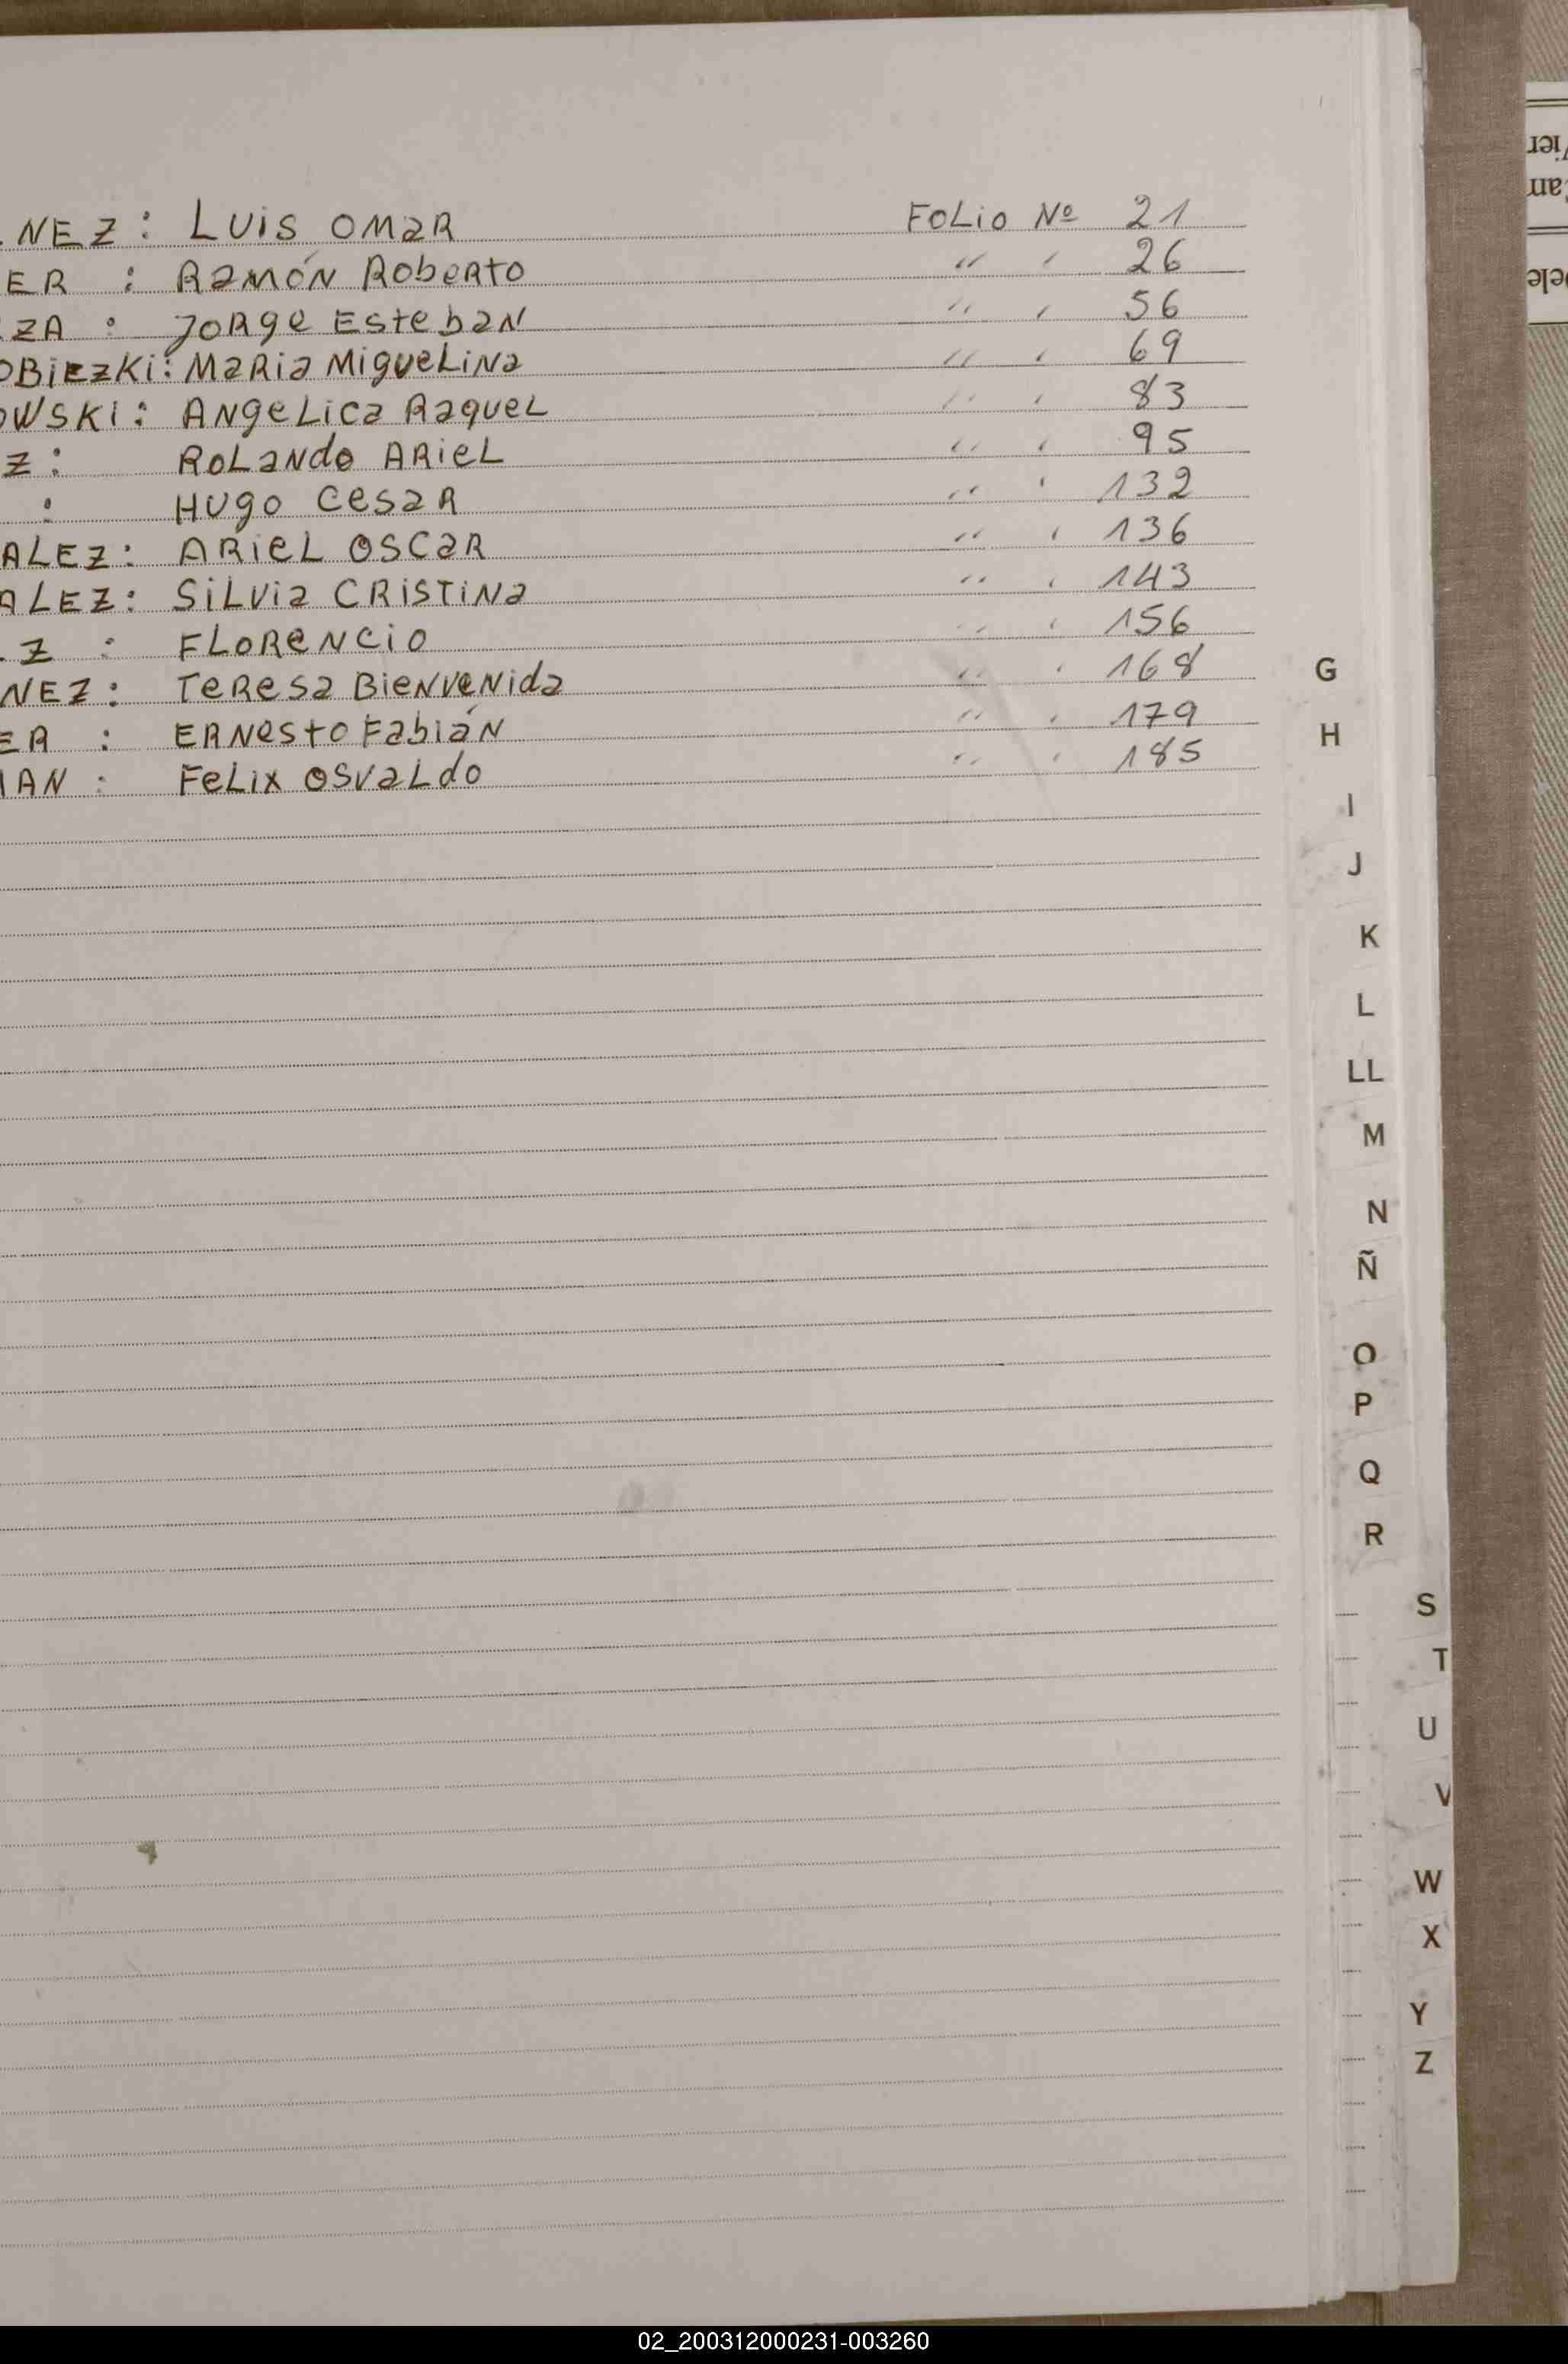 NEZ: Luis Omar Folio Nº 21
ER : Ramón Roberto " " 26
ZA : Jorge Esteban " " 56
OBIEZKI: Maria Miguelina " " 69
OWSKI: Angelica Raquel " " 83
Z: Rolando Ariel " " 95
: Hugo Cesar " " 132
ALEZ: Ariel Oscar " " 136
ALEZ: Silvia Cristina " " 143
Z : Florencio " " 156
NEZ: Teresa Bienvenida " " 168
ER : Ernesto Fabián " " 179
AN : Felix Osvaldo " " 185
G
H
I
J
K
L
LL
M
N
Ñ
O
P
Q
R
S
T
U
V
W
X
Y
Z
02_200312000231-003260